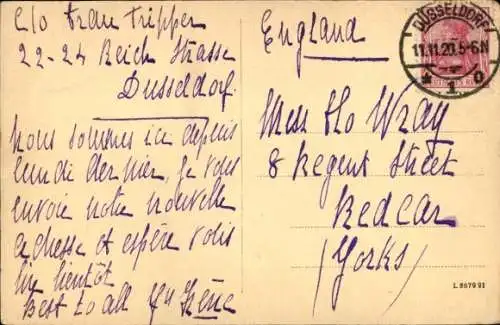 c/o Frau Tripper
22-24 Reich Strasse
Dusseldorf.
Nous sommes ici depuis
lundi dernier, je vous
envoie notre nouvelle
adresse et espère vous
lire bientôt
Best to all
England
DÜSSELDORF
11.11.20.5-6N
* 1 o
Miss Flo Wray
8 Regent Street
Redcar
(Yorks)
L 8679 91